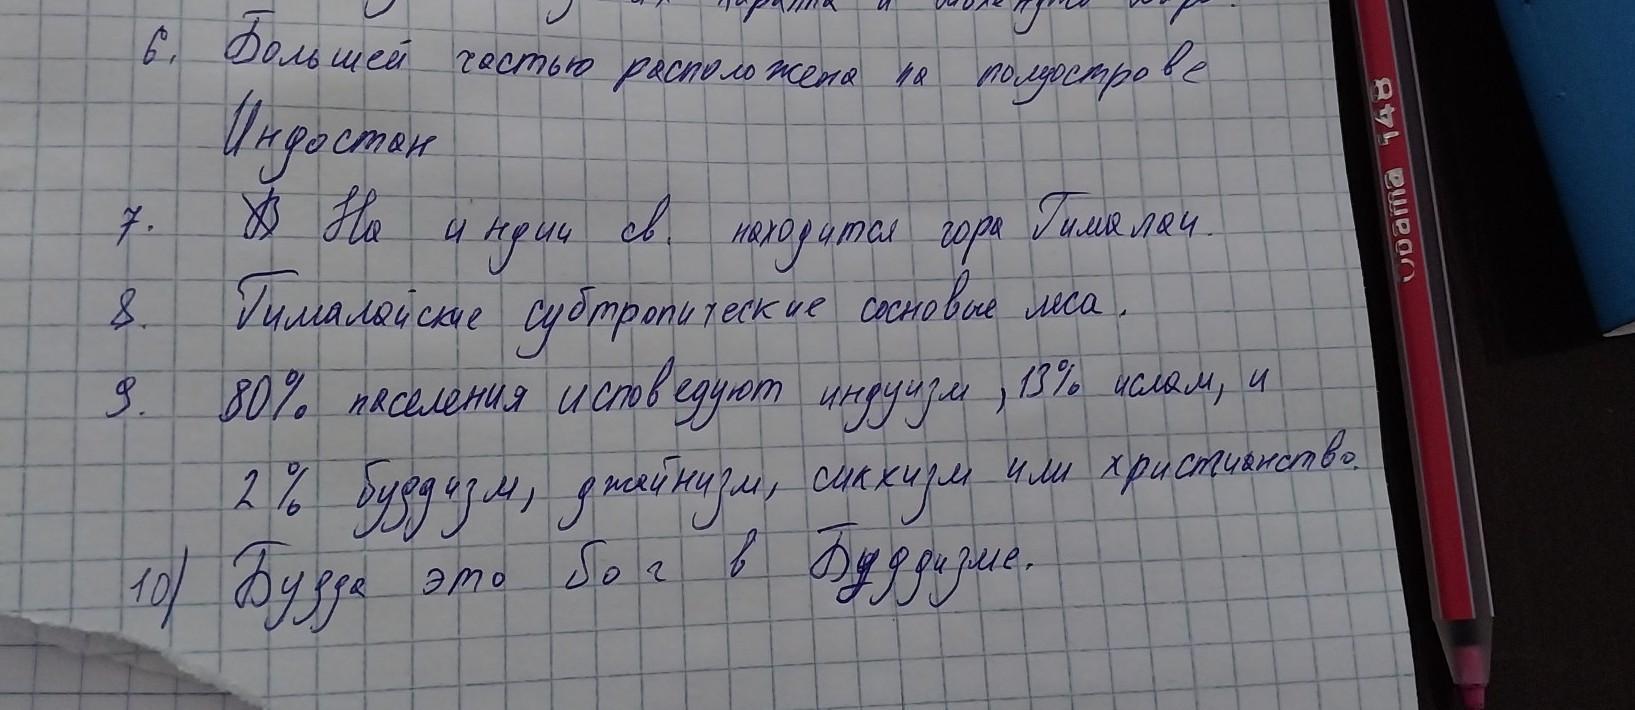 6. Большей частью расположена на полуострове
Индостан
7. На индии св. находится гора Гималаи.
8. Гималайские субтропические сосновые леса.
9. 80% населения исповедуют индуизм, 13% ислам, и
2% буддизм, джайнизм, сикхизм или христианство.
10) Будда это бог в Буддизме.
Oatma 148